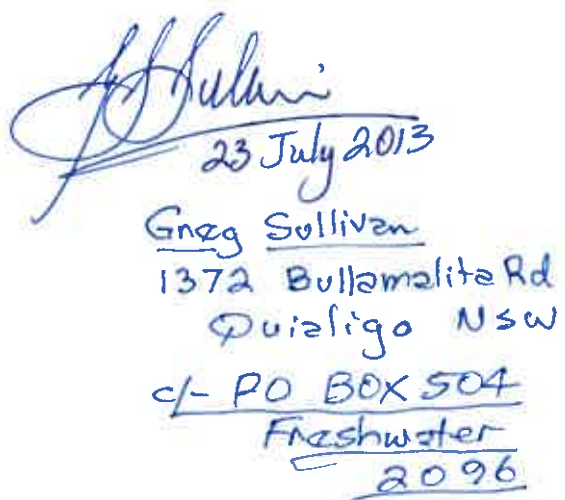 23 July 2013
Greg Sullivan
1372 Bullamalita Rd
Quialigo NSW
c/- PO BOX 504
Freshwater
2096